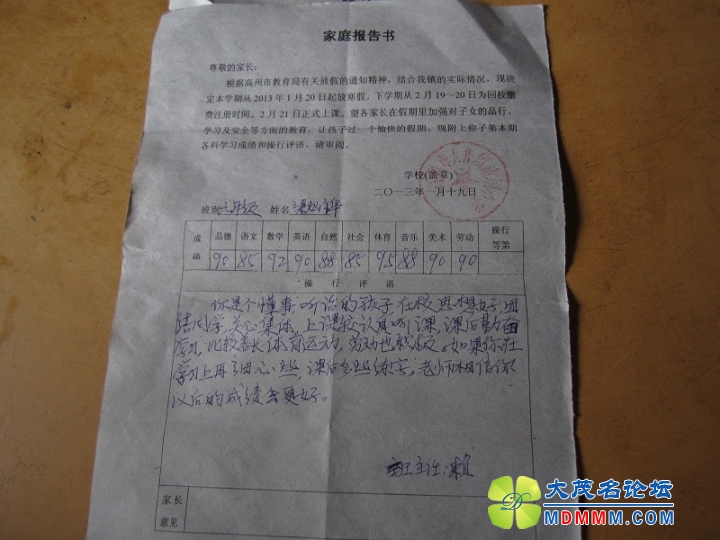 家庭报告书
尊敬的家长:
根据高州市教育局有关放假的通知精神,结合我镇的实际情况,现决
定本学期从2013年1月20日起放寒假。下学期从2月19~20日为回校缴
费注册时间。2月21日正式上课。望各家长在假期里加强对子女的品行、
学习及安全等方面的教育,让孩子过一个愉快的假期。现附上你子弟本期
各科学习成绩和操行评语,请审阅。
学校(盖章)
二〇一三年一月十九日
班别 姓名
成绩 品德 语文 数学 英语 自然 社会 体育 音乐 美术 劳动 操行等第
90 85 92 90 88 85 95 88 90 90
操行评语
你是个懂事听话的孩子,在校思想好,团
结同学,关心集体,上课较认真听课,课后勤奋
学习,比较喜长体育运动,劳动也积极。如果你在
学习上再细心些,课后多些练字,老师相信你
以后的成绩会更好。
班主任:赖
家长
意见
大茂名论坛
MDMMM.COM